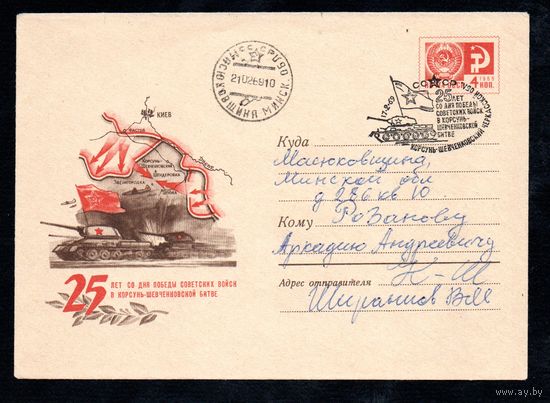 КИЕВ
КОРСУНЬ-
ШЕВЧЕНКОВСКИЙ
ШЕНДЕРОВКА
ЗВЕНИГОРОДКА
25 ЛЕТ СО ДНЯ ПОБЕДЫ СОВЕТСКИХ ВОЙСК
В КОРСУНЬ-ШЕВЧЕНКОВСКОЙ БИТВЕ
21 02 69 10
МИНСК.
4
КОП.
СССР
17-2-69
25
ЛЕТ
СО ДНЯ ПОБЕДЫ
СОВЕТСКИХ ВОЙСК
В КОРСУНЬ-
ШЕВЧЕНКОВСКОЙ
БИТВЕ
КОРСУНЬ-ШЕВЧЕНКОВСКИЙ ЧЕРКАССКОЙ ОБЛ.
Куда
Масюковщина,
Минской обл
д 286 кв 10
Кому Розанову
Аркадию Андреевичу
Адрес отправителя К-Ш
www.ay.by